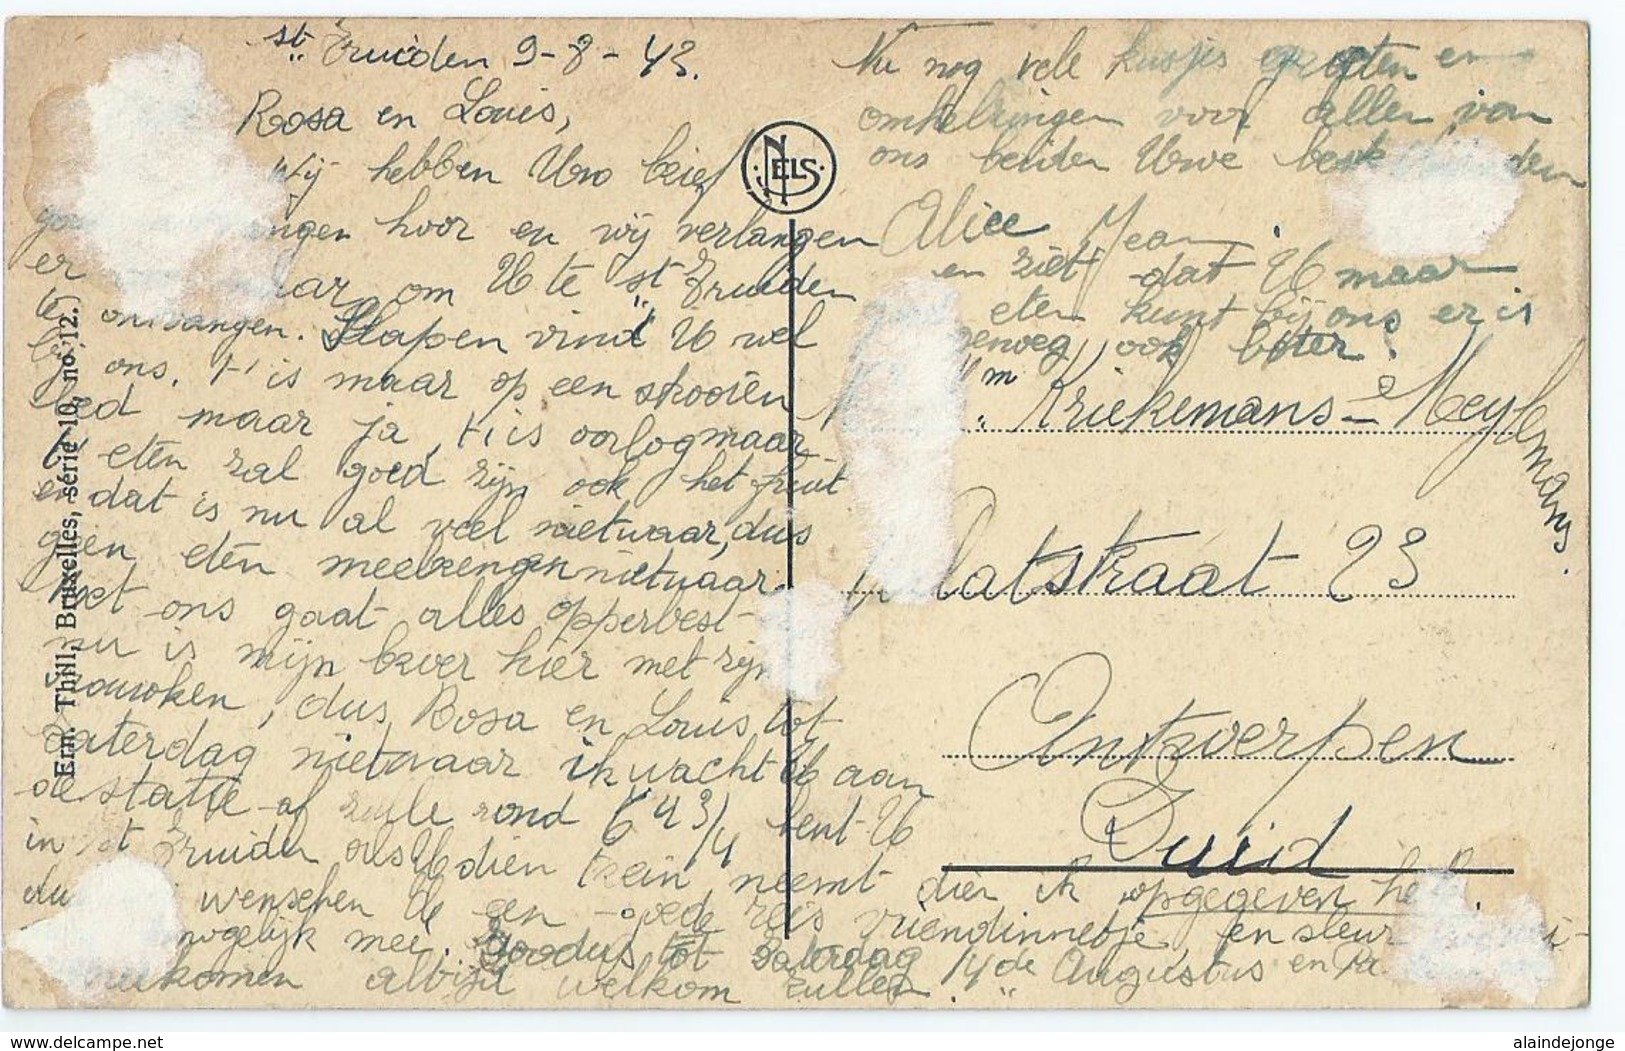 St. Truiden 9-8-43.
Rosa en Louis,
Wij hebben Uw brief
hoor en wij verlangen
er om U te St. Truiden
te ontvangen. Slapen vind U wel
bij ons. t' is maar op een strooien
bed maar ja, t' is oorlog maar
t' eten zal goed zijn ook het fruit
en dat is nu al veel nietwaar, dus
geen eten meebrengen nietwaar.
Met ons gaat alles opperbest
nu is mijn broer hier met zijn
vrouwken, dus Rosa en Louis tot
Zaterdag nietwaar ik wacht U aan
de statie af rond 6 u 3/4 bent U
in St Truiden als U dien trein neemt
dien ik opgegeven heb.
wenschen U een goede reis
vriendinnetje, en
mogelijk mee. dus tot Zaterdag 14de Augustus en
altijd welkom zullen
Nu nog vele kusjes groeten en
omhelzingen voor allen van
ons beiden Uwe
Alice Jean.
en ziet dat U maar
eten kunt bij ons er is
genoeg, ook boter.
Kriekemans-Meylemans.
latstraat 23
Antwerpen
Zuid
NELS
Ern. Thill, Bruxelles, série 10, no. 12.
www.delcampe.net
alaindejonge